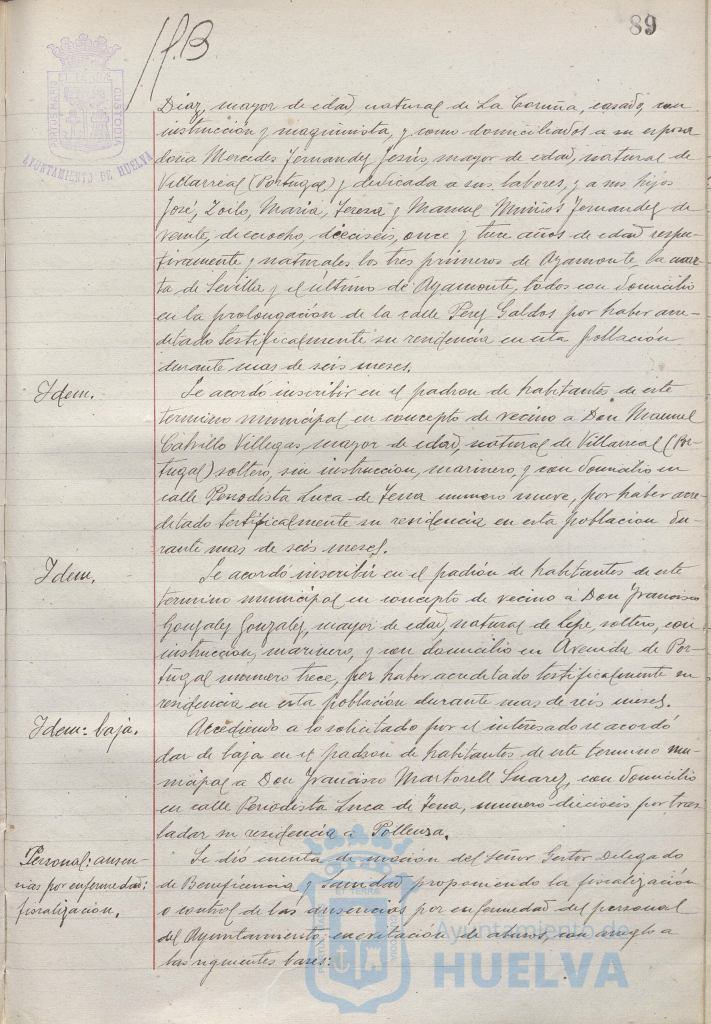 89
AYUNTAMIENTO DE HUELVA
Diaz, mayor de edad, natural de La Coruña, casado, con
instrucción y maquinista, y como domiciliados a su esposa
doña Mercedes Fernandez Jesús, mayor de edad, natural de
Villarreal (Portugal) y dedicada a sus labores, y a sus hijos
José, Zoilo, Maria, Teresa y Manuel Muiños Fernandez de
veinte, dieciocho, dieciseis, once y trece años de edad respec-
tivamente y naturales los tres primeros de Ayamonte la cuar-
ta de Sevilla y el último de Ayamonte, todos con domicilio
en la prolongación de la calle Perez Galdos por haber acre-
ditado testificalmente su residencia en esta población
durante mas de seis meses.
Idem.
Se acordó inscribir en el padron de habitantes de este
termino municipal en concepto de vecino a Don Manuel
Calvillo Villegas, mayor de edad, natural de Villarreal (Por-
tugal) soltero, sin instruccion, marinero, y con domicilio en
calle Periodista Luca de Tena numero nueve, por haber acre-
ditado testificalmente su residencia en esta poblacion du-
rante mas de seis meses.
Idem.
Se acordó inscribir en el padrón de habitantes de este
termino municipal en concepto de vecino a Don Francisco
Gonzalez Gonzalez, mayor de edad, natural de Lepe, soltero, con
instruccion, marinero, y con domicilio en Avenida de Por-
tugal numero trece, por haber acreditado testificalmente su
residencia en esta población durante mas de seis meses.
Idem: baja.
Accediendo a lo solicitado por el interesado se acordó
dar de baja en el padron de habitantes de este termino mu-
nicipal a Don Francisco Martorell Suarez, con domicilio
en calle Periodista Luca de Tena, numero dieciseis por tras
ladar su residencia a Pollensa.
Personal: ausen-
cias por enfermedad:
fiscalización.
Se dió cuenta de moción del Señor Gestor Delegado
de Beneficencia y Sanidad proponiendo la fiscalización
o control de las ausencias por enfermedad del personal
del Ayuntamiento, en evitación de abusos, con arreglo a
las siguientes bases:
Ayuntamiento de
HUELVA